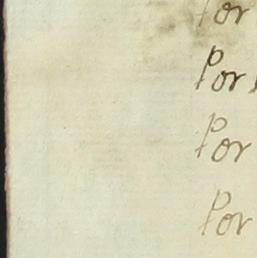 Por
Por
Por
Por